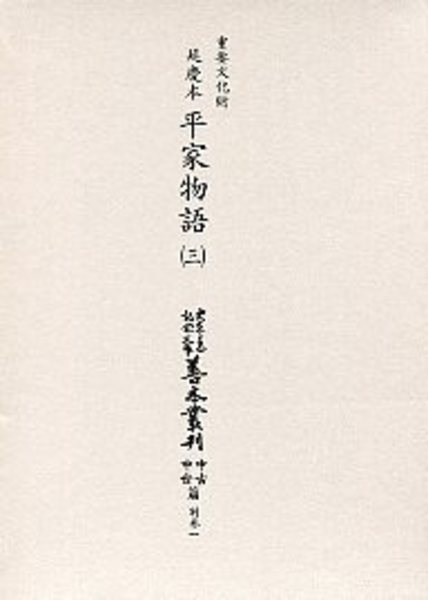 重要文化財
延慶本 平家物語 (三)
大東急記念文庫 善本叢刊 中古中世篇 別巻一